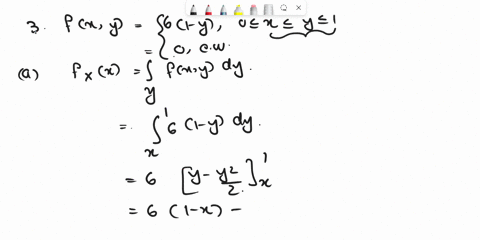 3. f(x,y) = { 6(1-y), 0≤x≤y≤1
= { 0, e.w.
(a) f_X(x) = ∫_y f(x,y) dy
= ∫_x^1 6(1-y) dy.
= 6 [y - y²/2]_x^1
= 6 (1-x) -